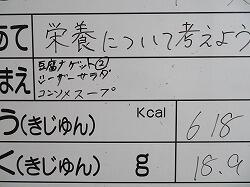 あて 栄養について考えよう
まえ 豆腐ナゲット(2)
シーザーサラダ
コンソメスープ
う(きじゅん) Kcal 618
く(きじゅん) g 18.9